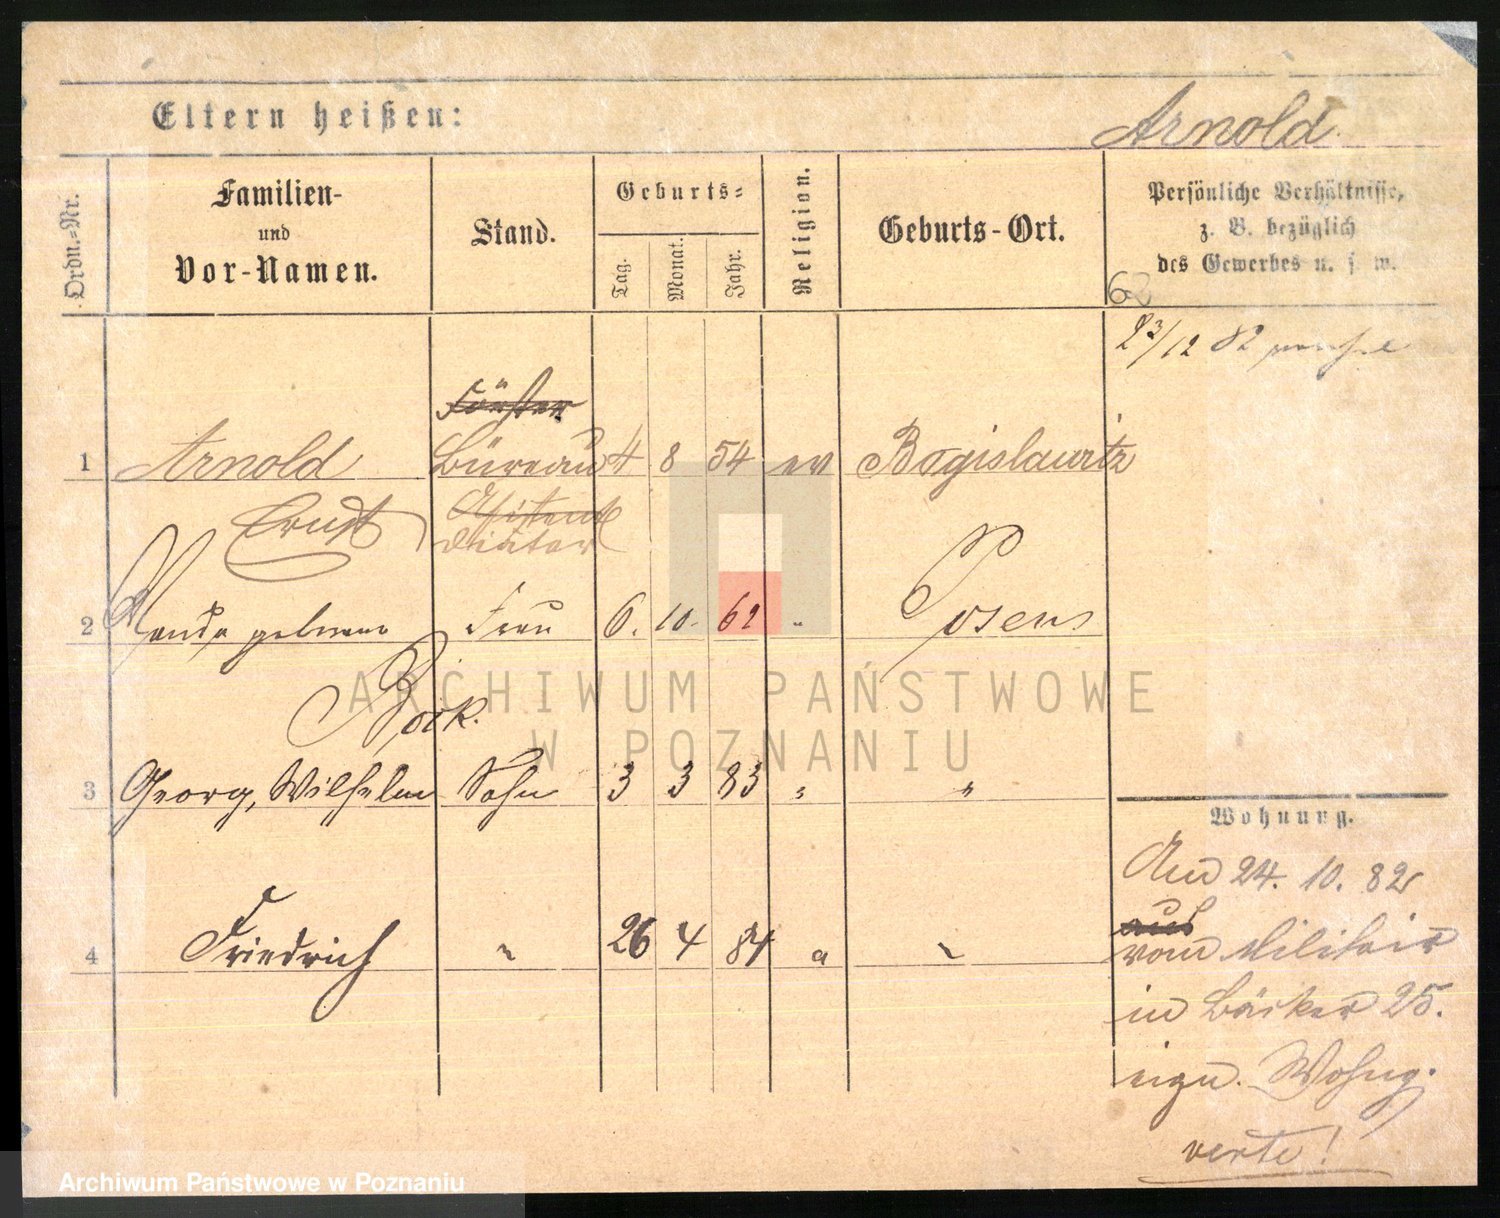 Eltern heißen:
Arnold
Ordn.-Nr.
Familien-
und
Vor-Namen.
Stand.
Geburts-
Tag.
Monat.
Jahr.
Religion.
Geburts-Ort.
Persönliche Verhältnisse,
z. B. bezüglich
des Gewerbes u. s. w.
23/12 82
Förster
1 Arnold Büreau 4 8 54 ev Bogislawitz
Ernst Assistent
Diätar
2 Wanda geborene Frau 6. 10. 62 " Posen
Bock.
3 Georg, Wilhelm Sohn 3 3 83 " "
Wohnung.
Am 24. 10. 82
aus
4 Friedrich " 26 4 84 " "
vom Militair
in Bäcker 25.
eign. Wohng.
verte!
ARCHIWUM PAŃSTWOWE
W POZNANIU
Archiwum Państwowe w Poznaniu